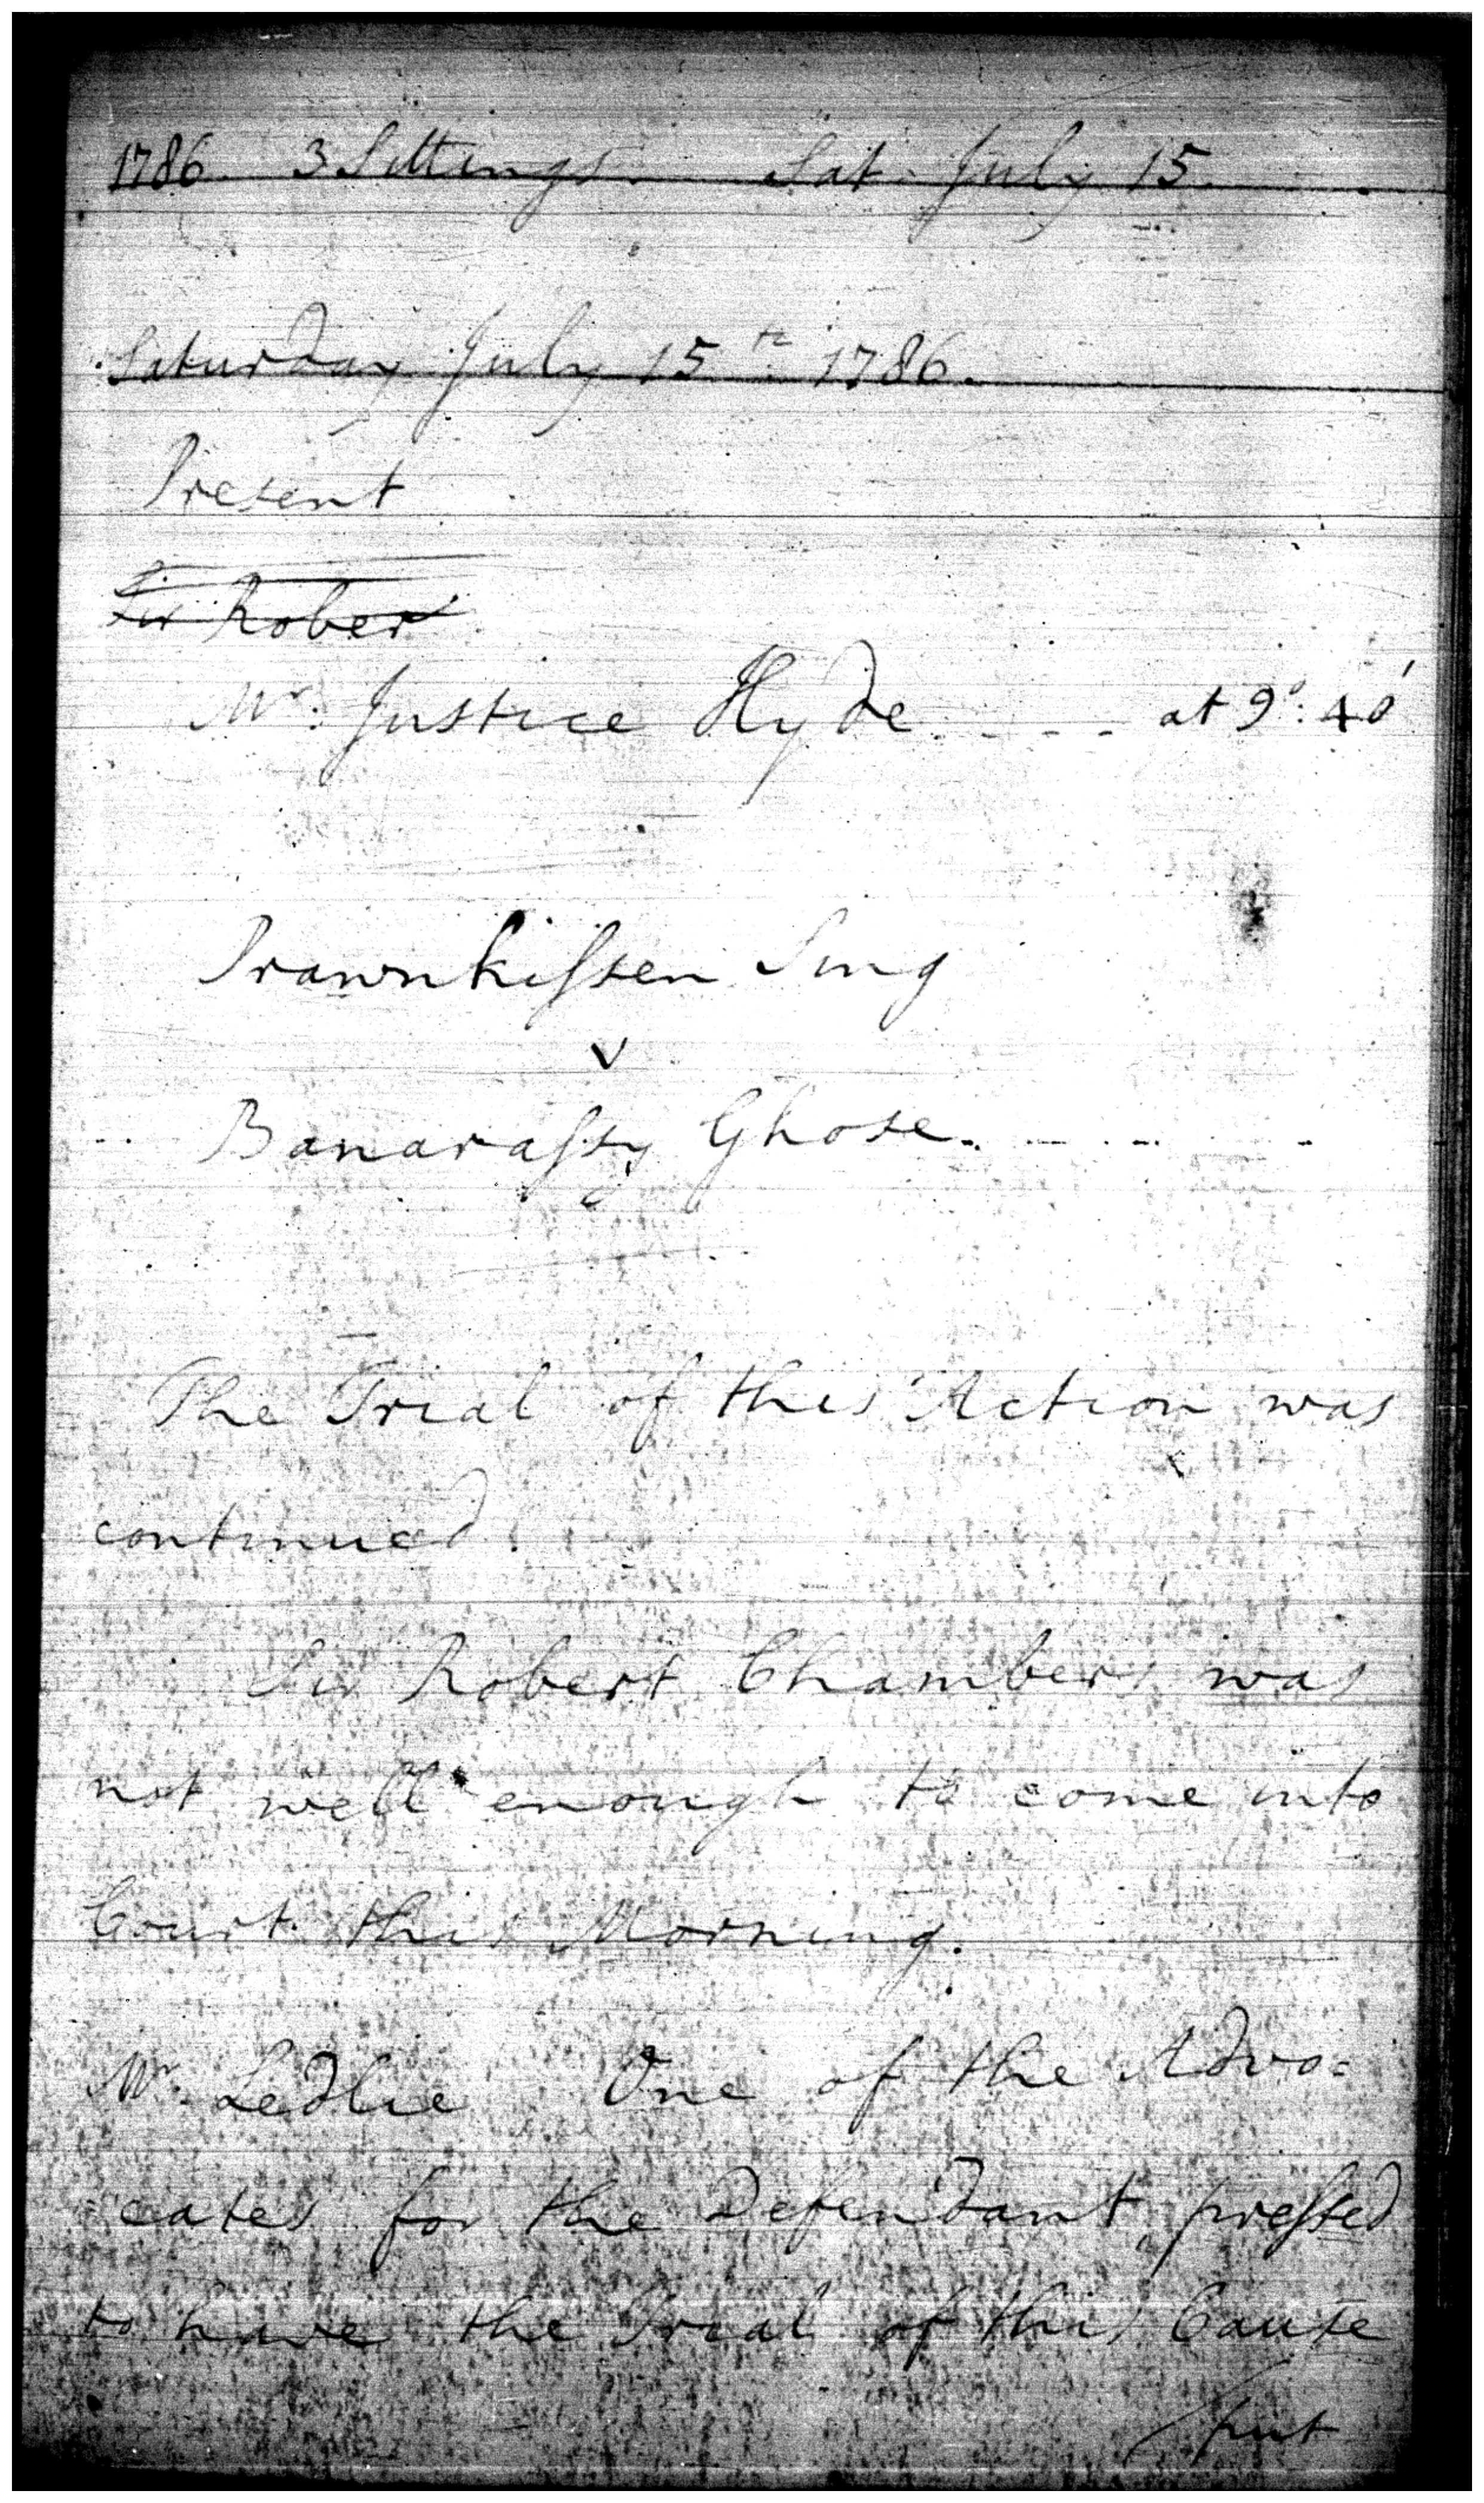 1786. 3 Sittings. Sat. July 15.
Saturday July 15th 1786.
Present
Sir Rober
Mr. Justice Hyde. - - - at 9°: 40'
Prawnkiſsen Sing
v
Banaraſsy Ghose.
The Trial of this Action was
continued.
Sir Robert Chambers was
not well enough to come into
Court this Morning.
Mr. Ledlie One of the Advo=
cates for the Defendant, preſsed
to have the Trial of this Cause
/put